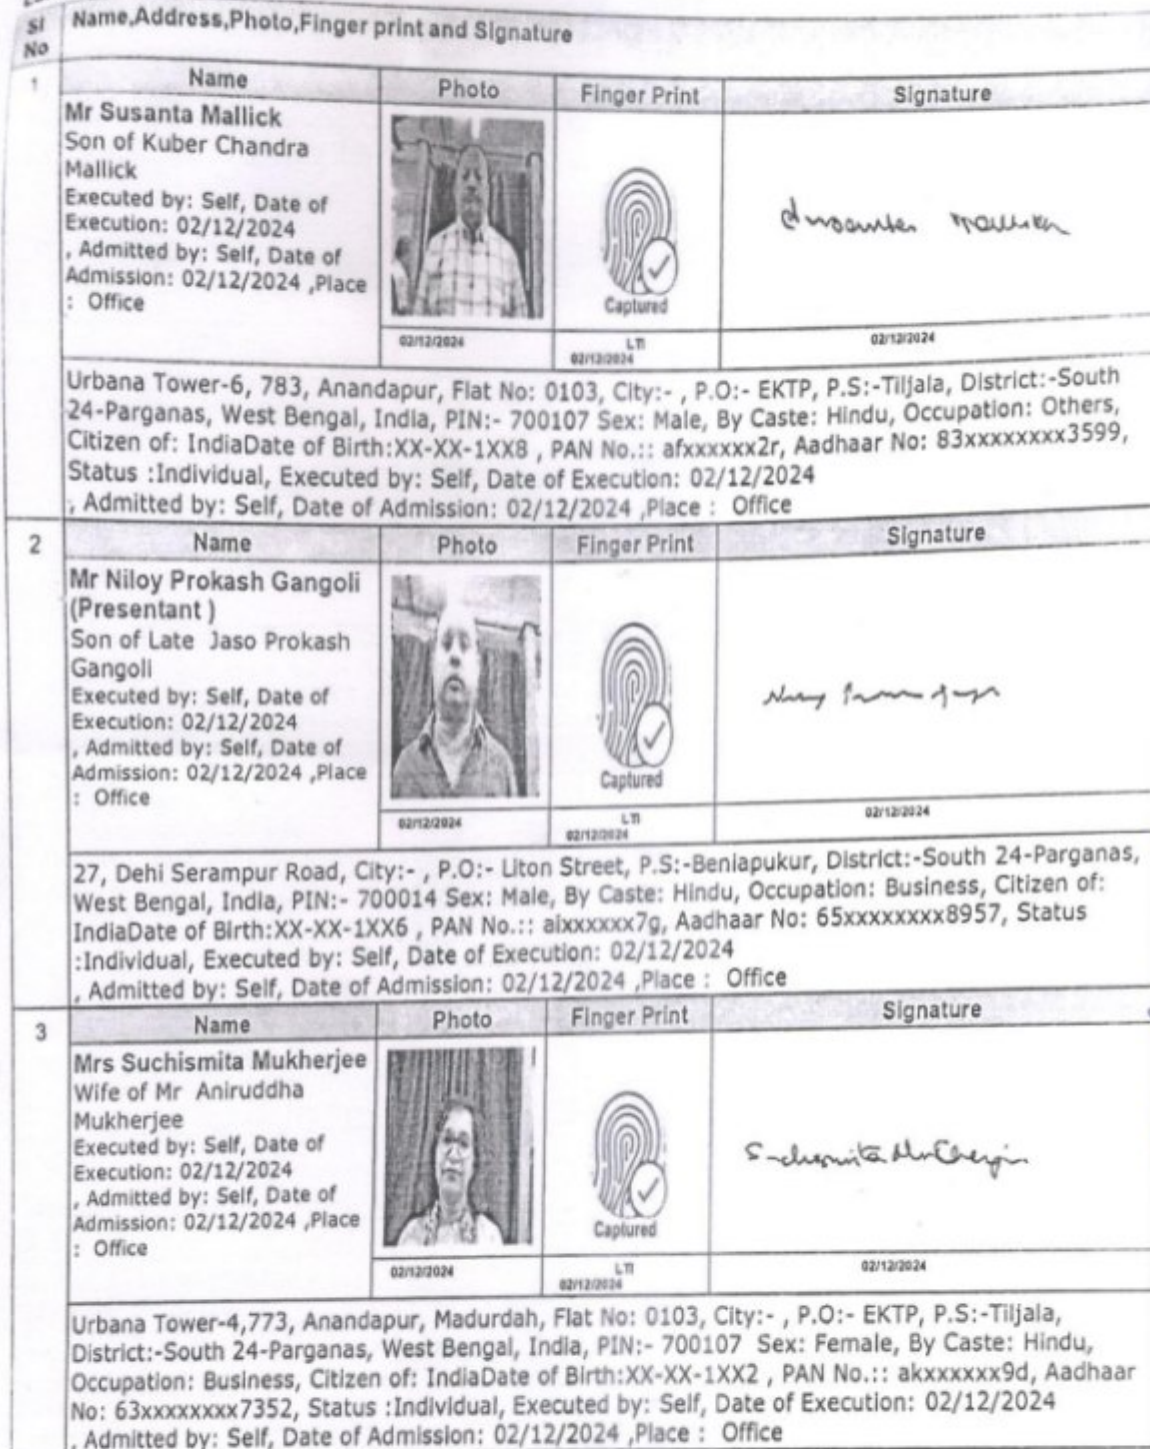 Sl
No
Name,Address,Photo,Finger print and Signature
1
Name
Photo
Finger Print
Signature
Mr Susanta Mallick
Son of Kuber Chandra
Mallick
Executed by: Self, Date of
Execution: 02/12/2024
, Admitted by: Self, Date of
Admission: 02/12/2024 ,Place
: Office
Captured
Susanta Mallick
02/12/2024
LTI
02/12/2024
02/12/2024
Urbana Tower-6, 783, Anandapur, Flat No: 0103, City:- , P.O:- EKTP, P.S:-Tiljala, District:-South
24-Parganas, West Bengal, India, PIN:- 700107 Sex: Male, By Caste: Hindu, Occupation: Others,
Citizen of: IndiaDate of Birth:XX-XX-1XX8 , PAN No.:: afxxxxxx2r, Aadhaar No: 83xxxxxxxx3599,
Status :Individual, Executed by: Self, Date of Execution: 02/12/2024
, Admitted by: Self, Date of Admission: 02/12/2024 ,Place : Office
2
Name
Photo
Finger Print
Signature
Mr Niloy Prokash Gangoli
(Presentant )
Son of Late Jaso Prokash
Gangoli
Executed by: Self, Date of
Execution: 02/12/2024
, Admitted by: Self, Date of
Admission: 02/12/2024 ,Place
: Office
Captured
02/12/2024
LTI
02/12/2024
02/12/2024
27, Dehi Serampur Road, City:- , P.O:- Liton Street, P.S:-Beniapukur, District:-South 24-Parganas,
West Bengal, India, PIN:- 700014 Sex: Male, By Caste: Hindu, Occupation: Business, Citizen of:
IndiaDate of Birth:XX-XX-1XX6 , PAN No.:: aixxxxxx7g, Aadhaar No: 65xxxxxxxx8957, Status
:Individual, Executed by: Self, Date of Execution: 02/12/2024
, Admitted by: Self, Date of Admission: 02/12/2024 ,Place : Office
3
Name
Photo
Finger Print
Signature
Mrs Suchismita Mukherjee
Wife of Mr Aniruddha
Mukherjee
Executed by: Self, Date of
Execution: 02/12/2024
, Admitted by: Self, Date of
Admission: 02/12/2024 ,Place
: Office
Captured
Suchismita Mukherjee
02/12/2024
LTI
02/12/2024
02/12/2024
Urbana Tower-4,773, Anandapur, Madurdah, Flat No: 0103, City:- , P.O:- EKTP, P.S:-Tiljala,
District:-South 24-Parganas, West Bengal, India, PIN:- 700107 Sex: Female, By Caste: Hindu,
Occupation: Business, Citizen of: IndiaDate of Birth:XX-XX-1XX2 , PAN No.:: akxxxxxx9d, Aadhaar
No: 63xxxxxxxx7352, Status :Individual, Executed by: Self, Date of Execution: 02/12/2024
, Admitted by: Self, Date of Admission: 02/12/2024 ,Place : Office